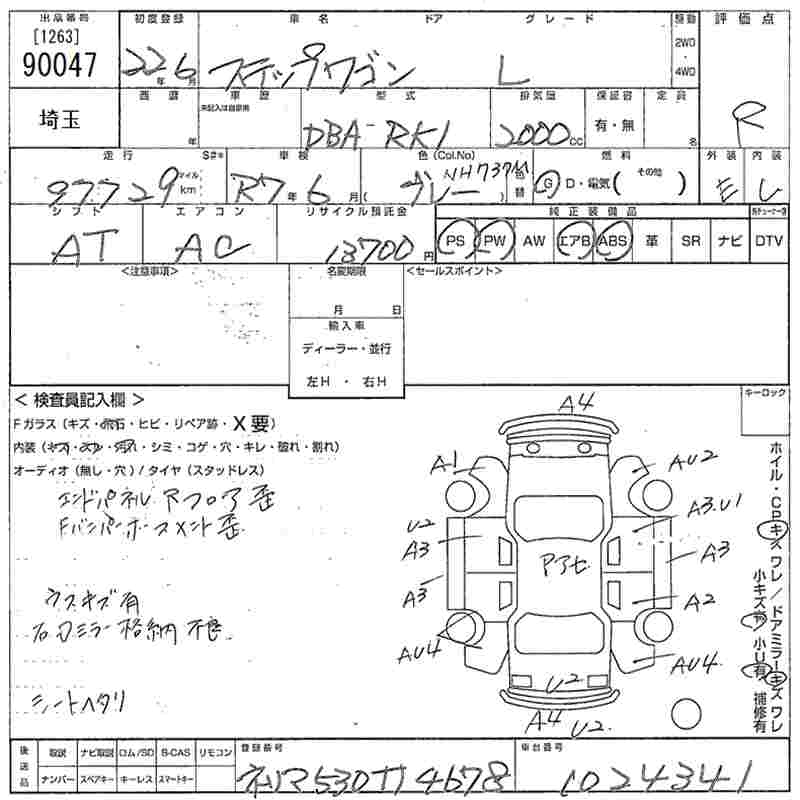 出品番号 初度登録 車名 ドア グレード 駆動 評価点
[1263]
90047 22年6月 ステップワゴン L 2WD・4WD R
埼玉 西暦 年 車歴 未記入は自家用 型式 排気量 保証書 定員
DBA-RK1 2000cc 有・無 名
走行 S#* 車検 色(Col.No) 燃料 外装 内装
97729 マイル km R7年6月 グレー NH737M 色替 G D・電気 (その他) E C
シフト エアコン リサイクル預託金 純正装備品
AT AC 13700円 PS PW AW エアB ABS 革 SR ナビ DTV
<注意事項> 名変期限 <セールスポイント>
月 日
輸入車
ディーラー・並行
左H・右H
<検査員記入欄> キーロック
Fガラス(キズ・飛石・ヒビ・リペア跡・X要)
内装(キズ・スレ・汚れ・シミ・コゲ・穴・キレ・破れ・割れ)
オーディオ(無し・穴)/タイヤ(スタッドレス)
エンドパネル Rフロア歪
Fバンパーホースメント歪
ウスキズ有
右Dミラー格納不良
シートヘタリ
A4
A1 AU2
U2 A3.U1
A3 A3
Pアセ
A3 A2
AU4 AU4
U2
A4 U2
ホイル・CPキズ ワレ/ドアミラーキズ ワレ
小キズ有 小U有 補修有
後送品 取説 ナビ取説 ロム/SD B-CAS リモコン 登録番号 車台番号
ナンバー スペアキー キーレス スマートキー 1024341